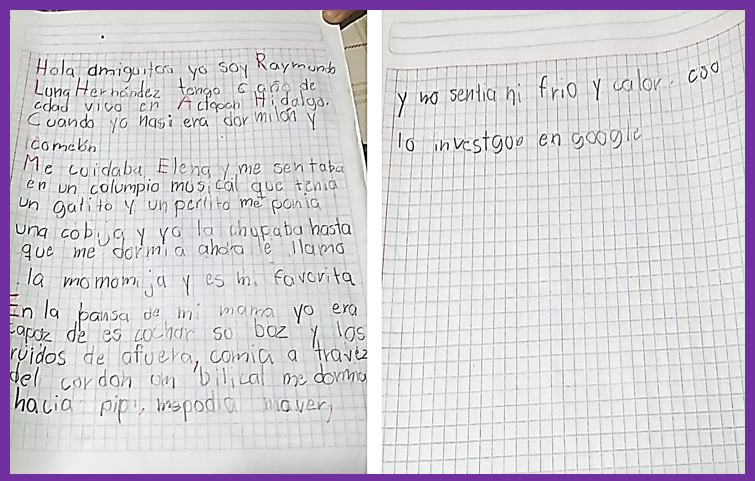 Hola amiguitos yo soy Raymundo
Luna Hernández tengo 6 año de
edad vivo en Actopan Hidalgo.
Cuando yo nasi era dormilon y
comelon
Me cuidaba Elena y me sentaba
en un columpio musical que tenia
un gatito y un perrito me ponia
una cobija y yo la chupaba hasta
que me dormia ahora le llamo
la momomija y es mi favorita
En la pansa de mi mama yo era
capaz de escochar so boz y los
ruidos de afuera, comia a travez
del cordon umbilical me dormia
hacia pipi, me podia mover,
y no sentia ni frio y calor. eso
lo investgoo en google